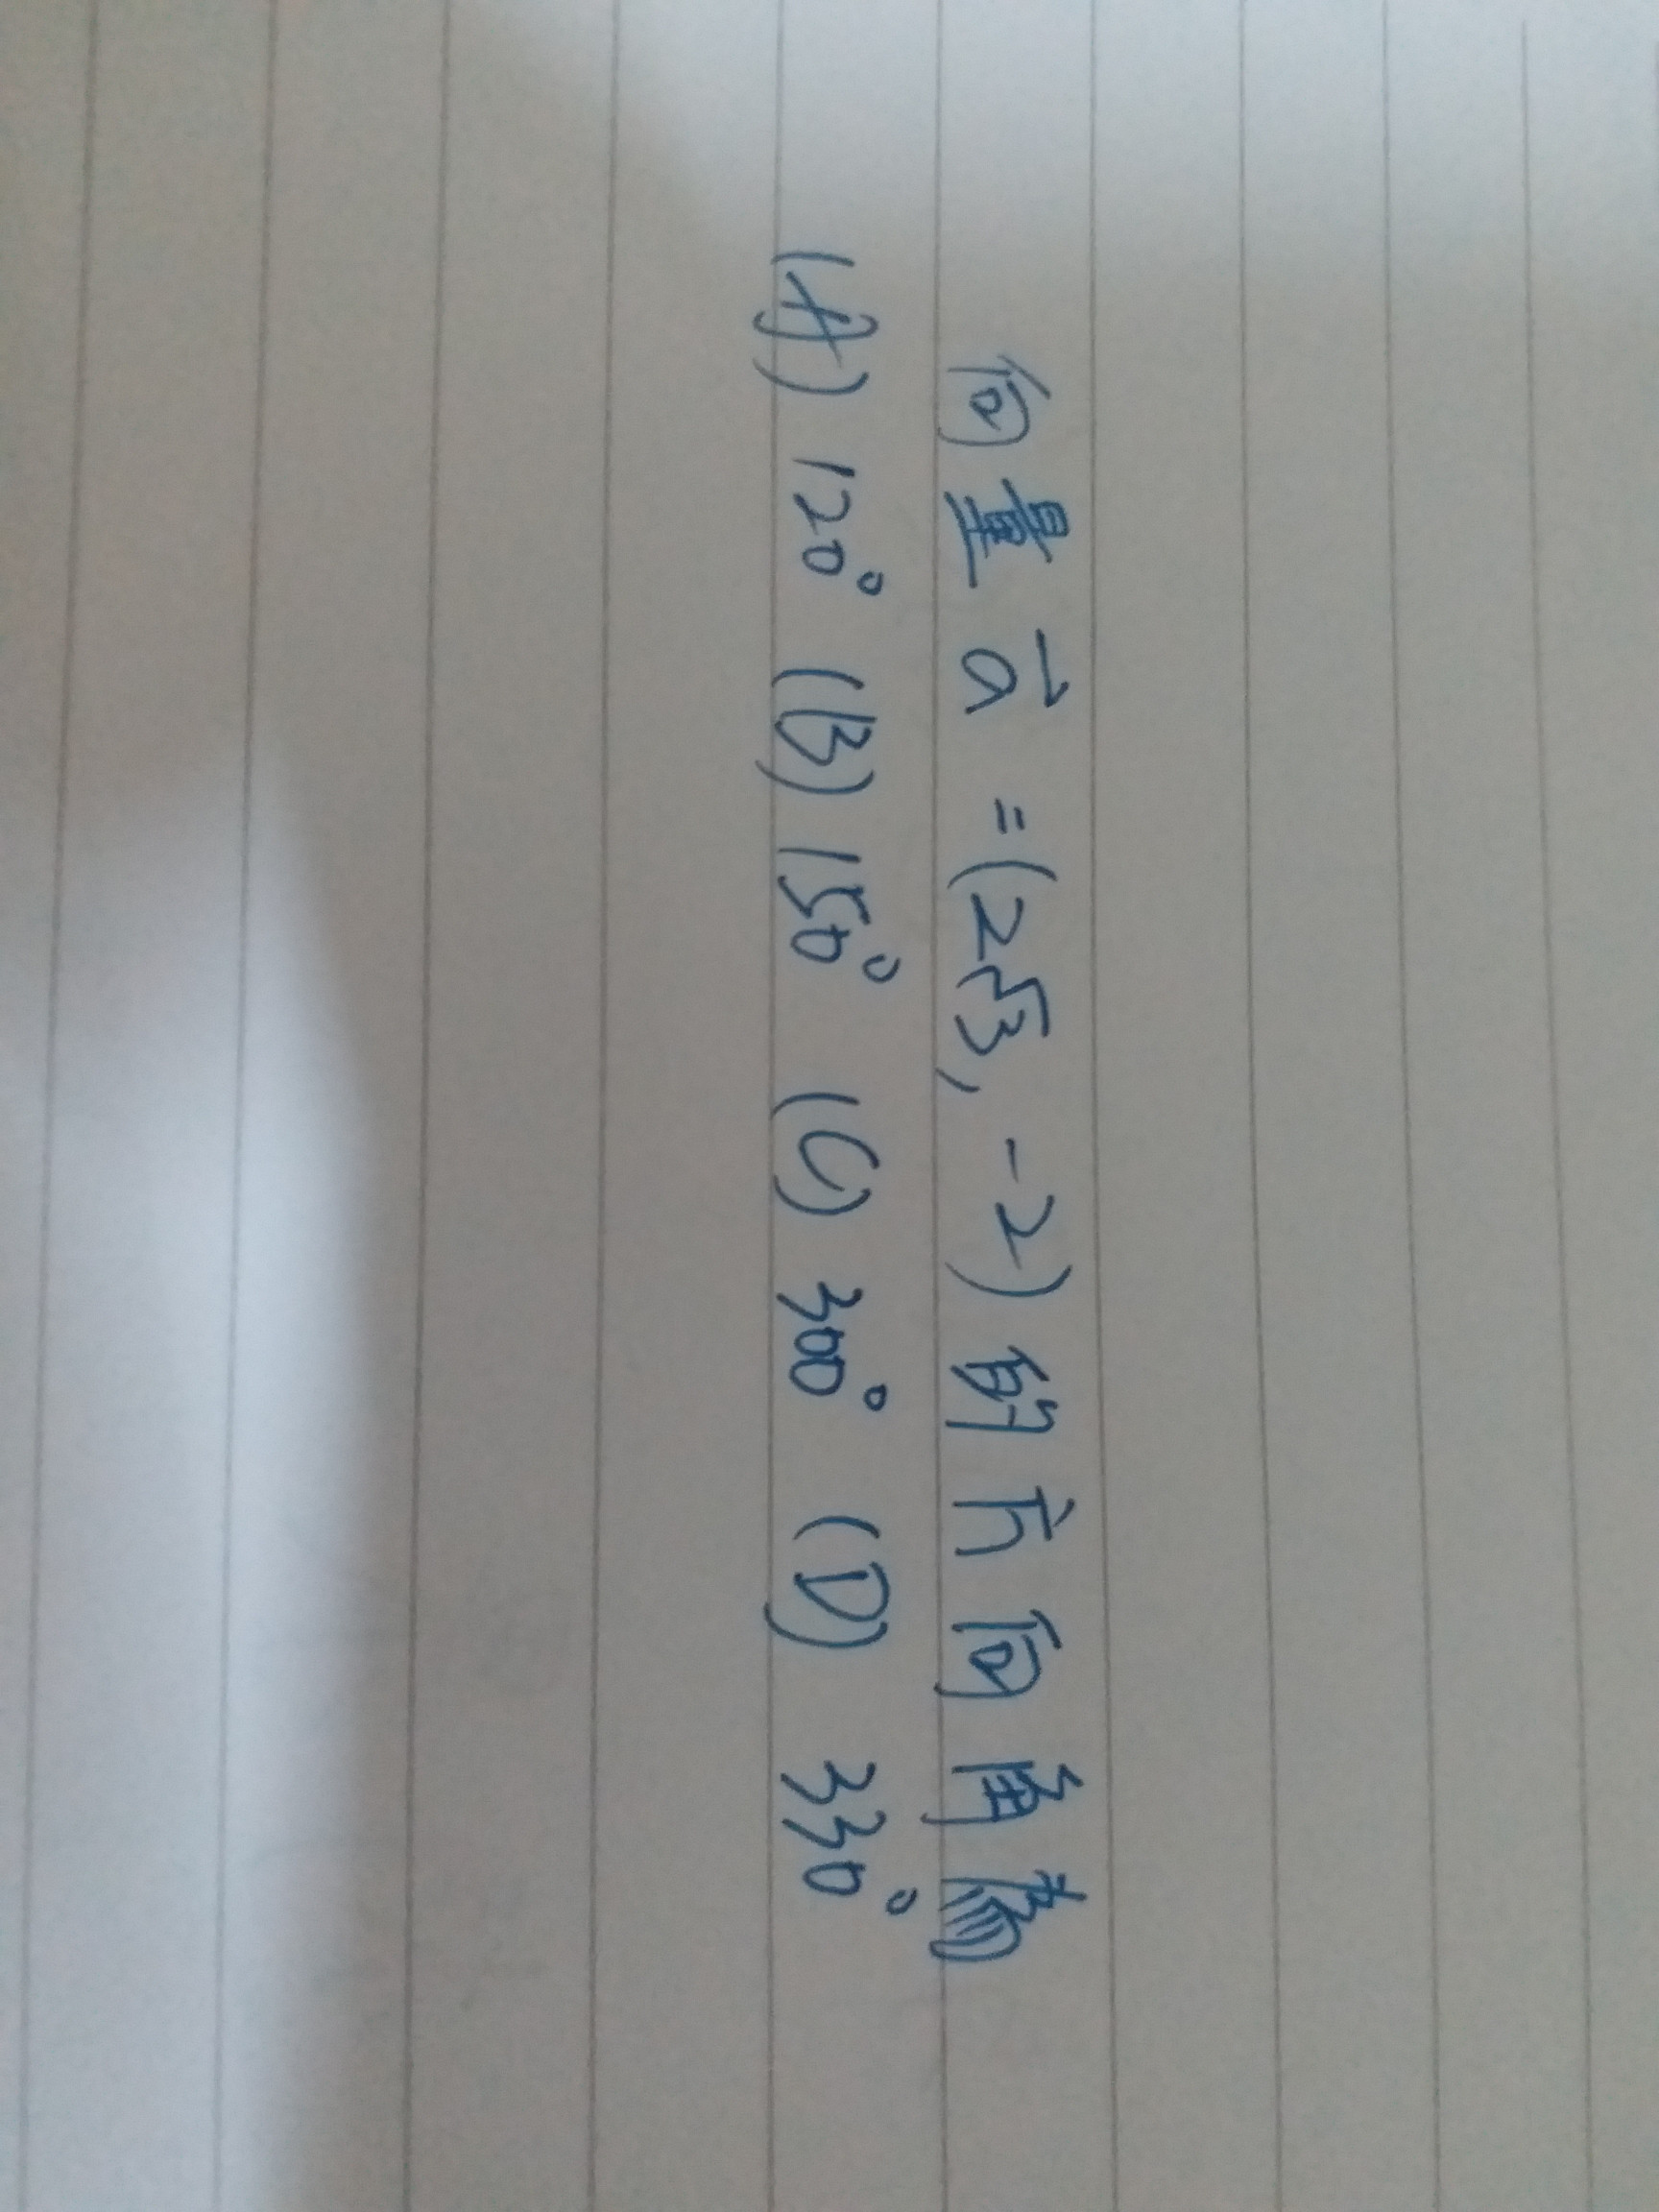 向量 a⃗ = (2√3, -2) 的方向角為
(A) 120° (B) 150° (C) 300° (D) 330°